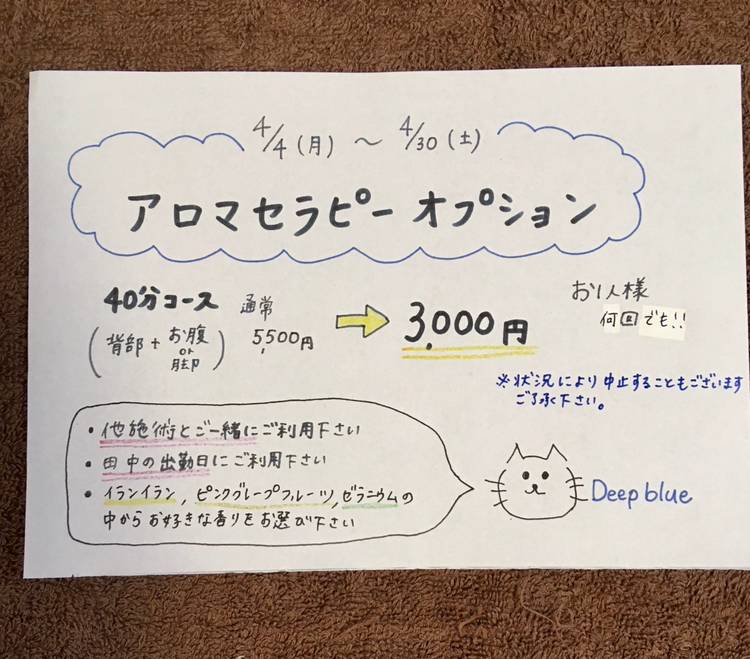 4/4(月) ～ 4/30(土)
アロマセラピー オプション
40分コース 通常 5,500円 → 3,000円
(背部 + お腹 or 脚)
お1人様
何回でも!!
※状況により中止することもございます
ご了承下さい。
• 他施術とご一緒にご利用下さい
• 田中の出勤日にご利用下さい
• イランイラン, ピンクグレープフルーツ, ゼラニウムの
中からお好きな香りをお選び下さい
Deep blue